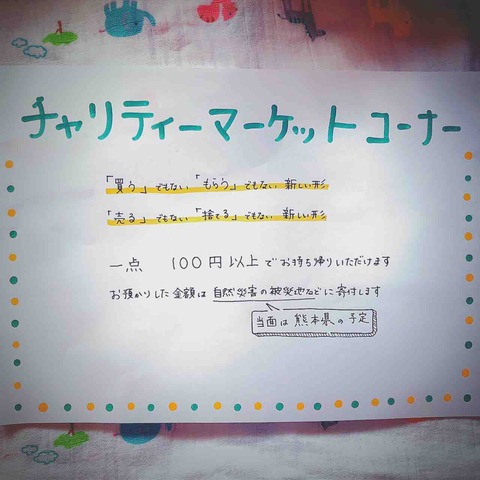 チャリティーマーケットコーナー
「買う」でもない「もらう」でもない 新しい形
「売る」でもない「捨てる」でもない 新しい形
一点 100円以上でお持ち帰りいただけます
お預かりした金額は 自然災害の被災地などに寄付します
当面は 熊本県の予定